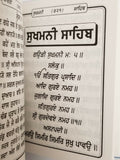 ਸੁਖਮਨੀ
ਸਾਹਿਬ
ਸੁਖਮਨੀ ਸਾਹਿਬ
ਗਉੜੀ ਸੁਖਮਨੀ ਮਃ ੫ ॥
ਸਲੋਕੁ ॥
ੴ ਸਤਿਗੁਰ ਪ੍ਰਸਾਦਿ ॥
ਆਦਿ ਗੁਰਏ ਨਮਹ ॥
ਜੁਗਾਦਿ ਗੁਰਏ ਨਮਹ ॥
ਸਤਿਗੁਰਏ ਨਮਹ ॥
ਸ੍ਰੀ ਗੁਰਦੇਵਏ ਨਮਹ ॥੧॥
ਅਸਟਪਦੀ ॥
ਸਿਮਰਿ ਸਿਮਰਿ ਸੁਖੁ ਪਾਵਉ ॥